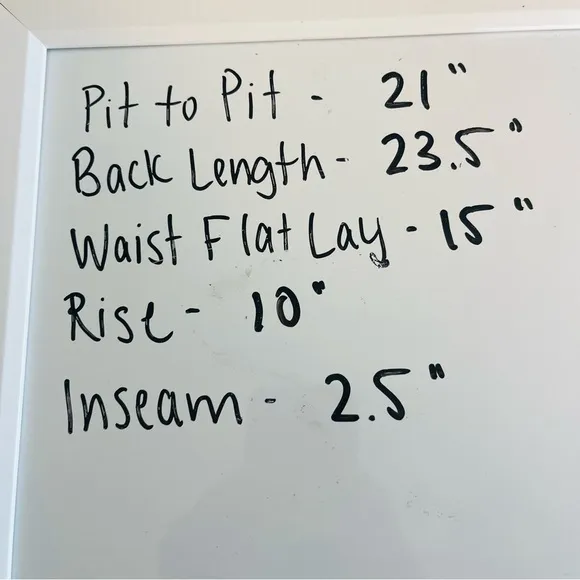 Pit to Pit - 21"
Back Length - 23.5"
Waist Flat Lay - 15"
Rise - 10"
Inseam - 2.5"